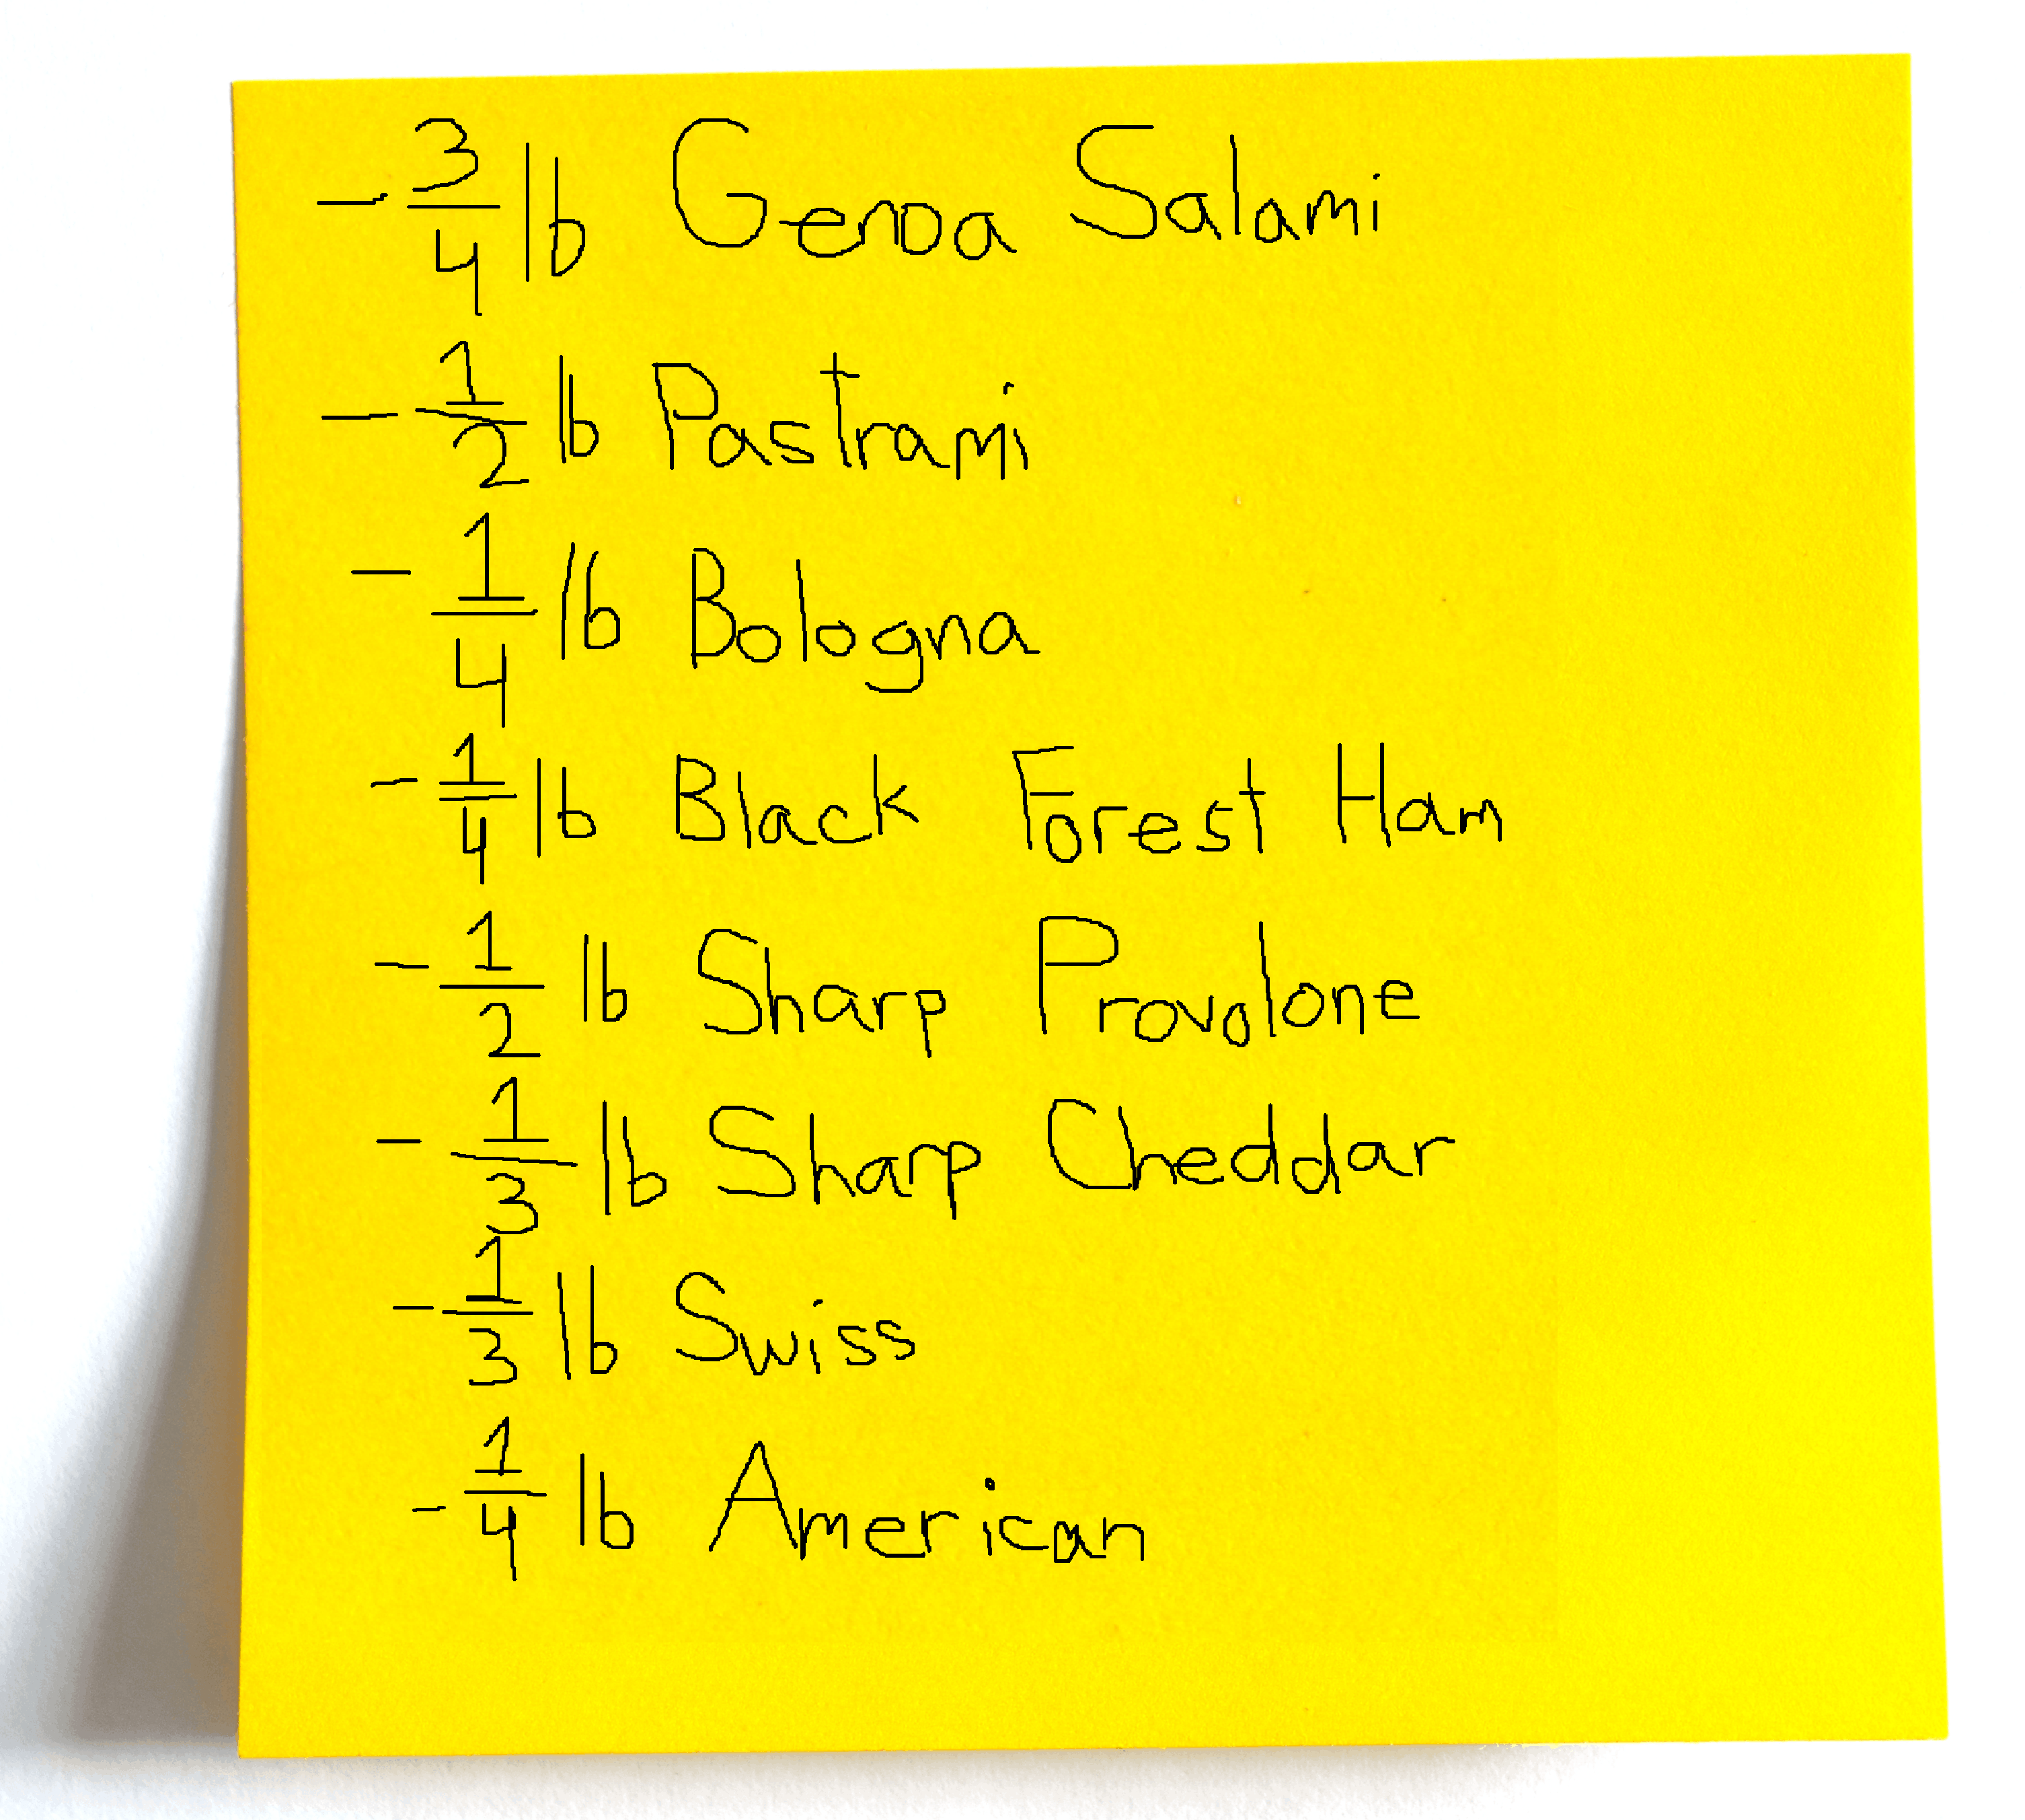 - 3/4 lb Genoa Salami
- 1/2 lb Pastrami
- 1/4 lb Bologna
- 1/4 lb Black Forest Ham
- 1/2 lb Sharp Provolone
- 1/3 lb Sharp Cheddar
- 1/3 lb Swiss
- 1/4 lb American